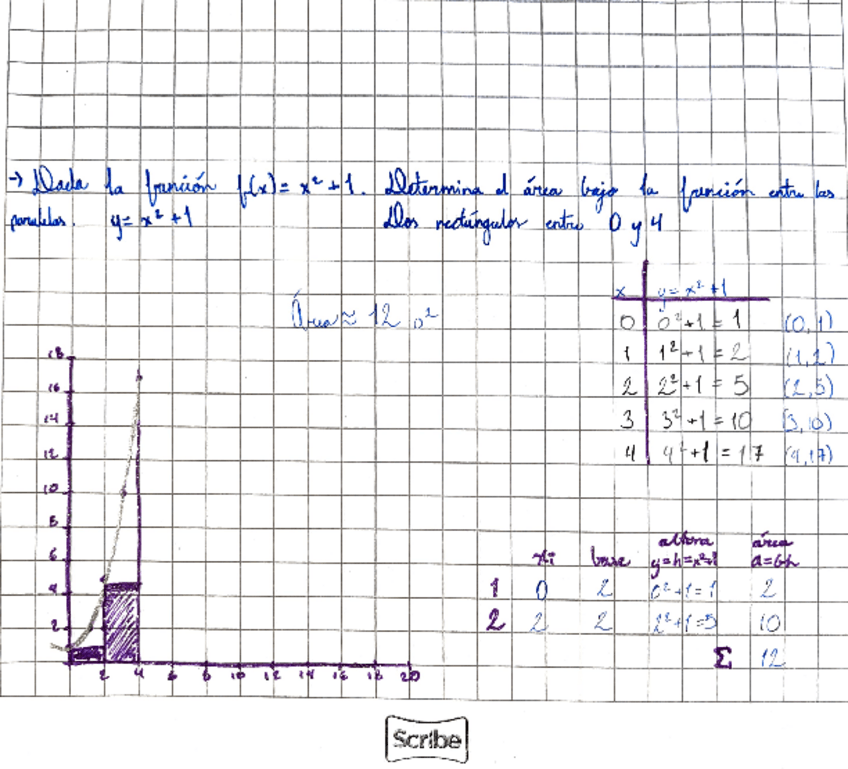 → Dada la función f(x)= x² + 1. Determina el área bajo la función entre las
paralelas. y= x² +1 Dos rectángulos entre 0 y 4
Área ≈ 12 u²
x y= x² +1
0 0²+1 = 1 (0,1)
1 1²+1 = 2 (1,2)
2 2²+1 = 5 (2,5)
3 3²+1 = 10 (3,10)
4 4²+1 = 17 (4,17)
18
16
14
12
10
8
6
4
2
2 4 6 8 10 12 14 16 18 20
altura área
xi base y=h=x²+1 a=bh
1 0 2 0²+1=1 2
2 2 2 2²+1=5 10
Σ 12
Scribe